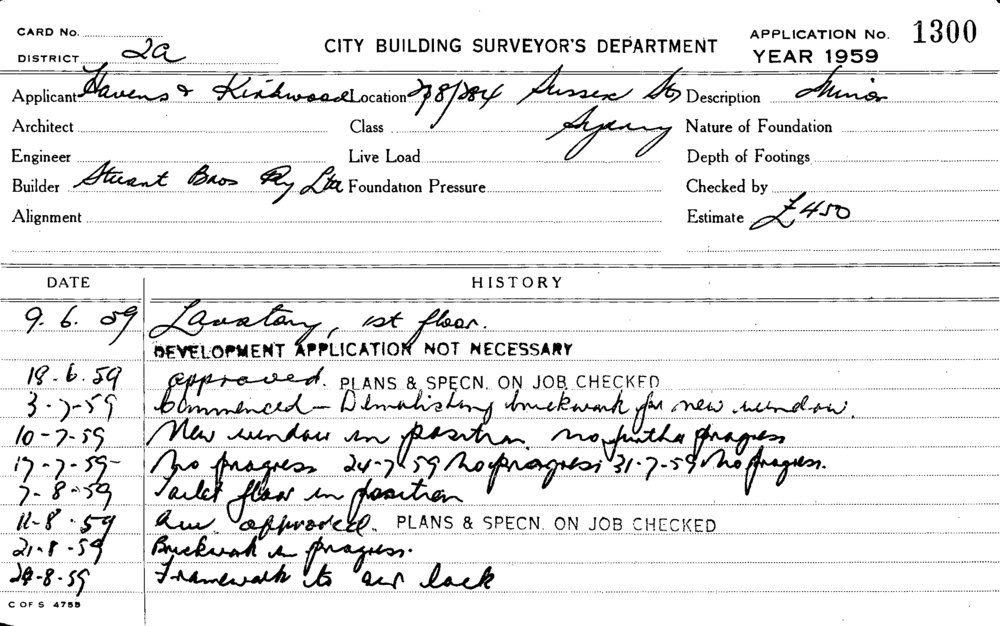 CARD No.
DISTRICT 2a
CITY BUILDING SURVEYOR'S DEPARTMENT
APPLICATION No. 1300
YEAR 1959
Applicant Havens & Kirkwood Location 278/284 Sussex St, Description Minor
Architect Class Sydney Nature of Foundation
Engineer Live Load Depth of Footings
Builder Stuart Bros Pty Ltd Foundation Pressure Checked by
Alignment Estimate £450
DATE HISTORY
9. 6. 59 Lavatory, 1st floor.
DEVELOPMENT APPLICATION NOT NECESSARY
18.6.59 approved. PLANS & SPECN. ON JOB CHECKED
3-7-59 Commenced - Demolishing brickwork for new window.
10-7-59 New window in position no further progress
17-7-59- No progress 24-7-59 No progress 31-7-59 No progress.
7-8-59 Toilet floor in position
11-8.59 approved. PLANS & SPECN. ON JOB CHECKED
21-8-59 Brickwork in progress.
28-8-59 Framework to air lock
C OF S 4755